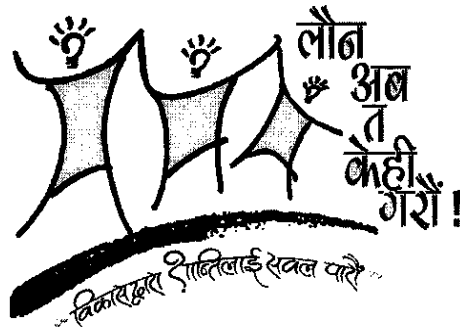 लौन
अब
त
केही
गरौं !
विकासद्वारा शान्तिलाई सवल पारौं